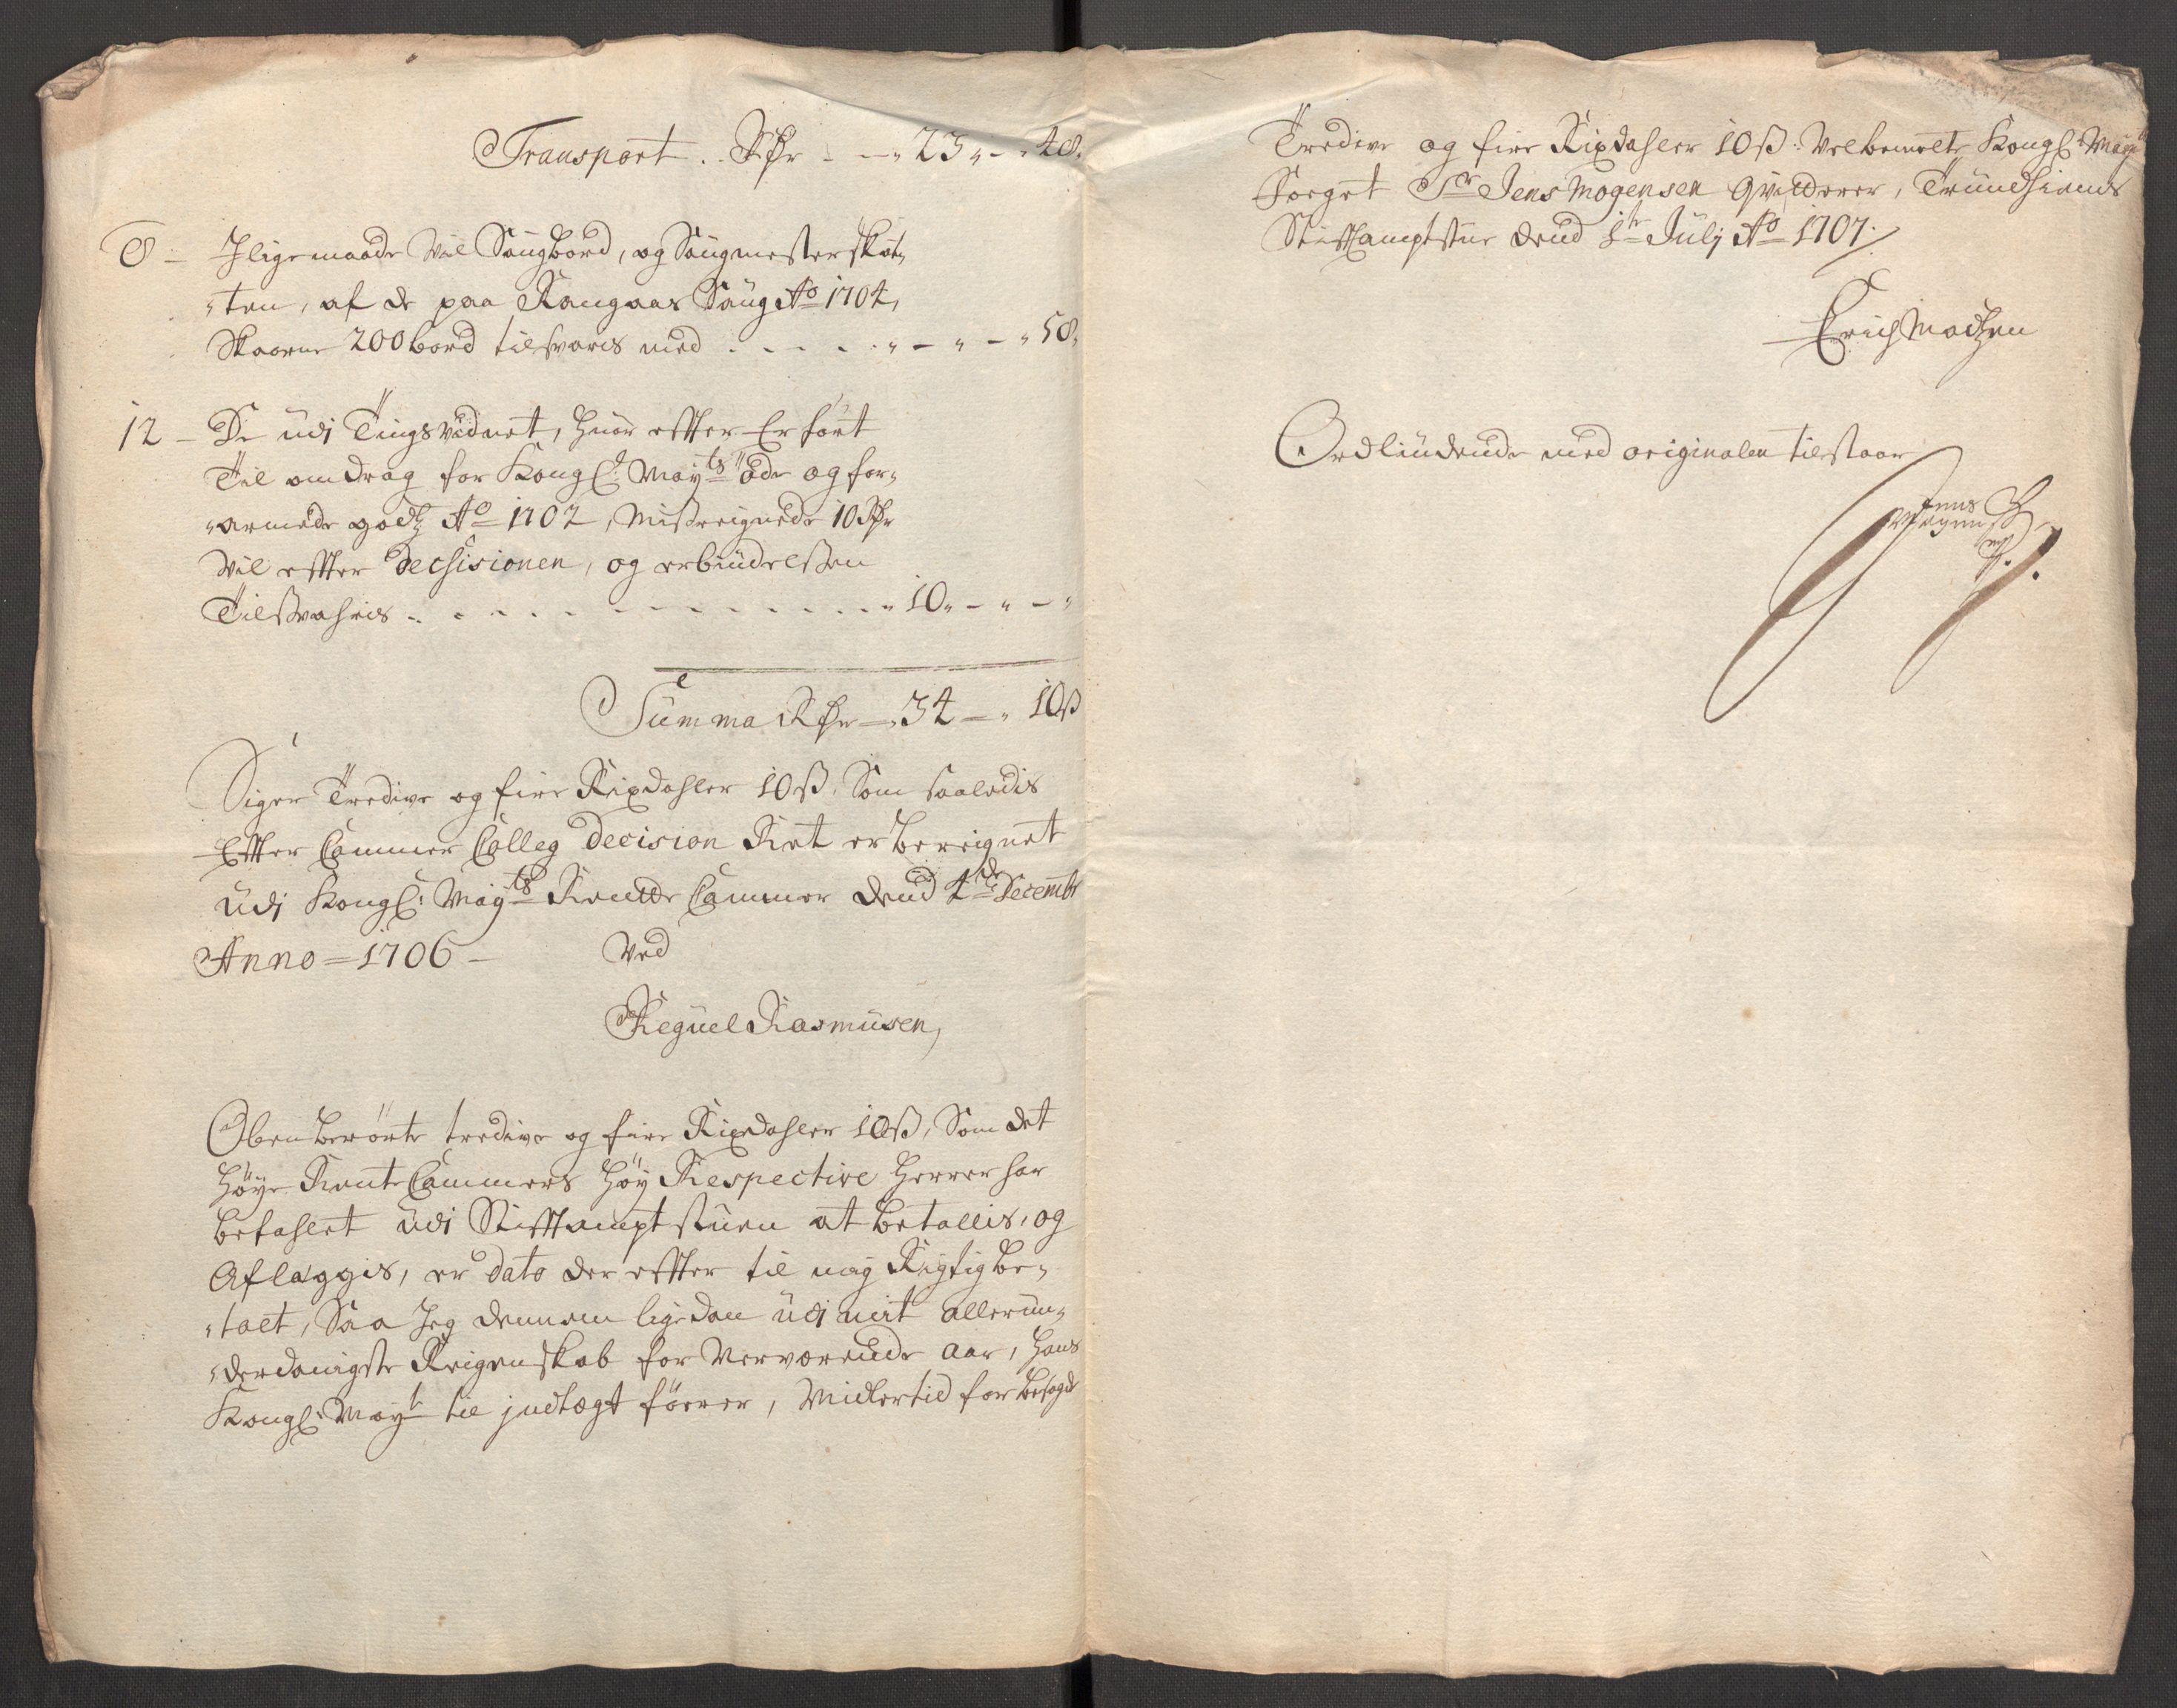 Transport .. Rdr - - 23 „ - „ 48.
8 - Jligemaade Vil Saugbord, og Saugmesterskat„
„ten, af de paa Rangaas Saug Ao 1704,
Skaarne 200 bord tilsvaris med . - . - . „ - „ - „ 58„
12 - De udi Tingsvidnet, huor effter Er ført
Til omdrag for Kongl: Mayts øde og for„
„armede godtz Ao 1702, Misreignede 10 Rdr
Vil effter Decisionen, og erbiudelsen
Tilsvahris . . - - - - - - - - - „ 10 „ - „ - „
Summa Rdr - 34 - „ 10 ß
Siger Tredive og fire Rixdahler 10 ß. Som saaledis
Effter Cammer Colleg Decision Ret er bereignet
udi Kongl: Mayts Rentte Cammer Dend 4de Decembr
Anno = 1706 - Ved
Reguel Rasmusen,
Ovenberørte tredive og fire Rixdahler 10 ß, Som det
høye Rente Cammers høy Respective Herrer har
befahlet udi Stifftamptstuen at betallis, og
Aflæggis, er dato der effter til mig Rigtig be„
„talt, Saa Jeg dennem ligedan udi mit allerun„
„derdanigste Reigenskab for nerværende aar, hans
Kongl: Mayt til indtægt fører, Midlertid for besagde
Tredive og fire Rixdahler 10 ß: Velbemelte Kongl: Mayts
Foeget Sr Jens Mogensen Qvitterer, Trundhiems
Stifftamptstue dend 1te Julij Ao 1707.
Erich Madtzen
Ordliudende med originalen tilstaar
Jens
Mogensß
mp.